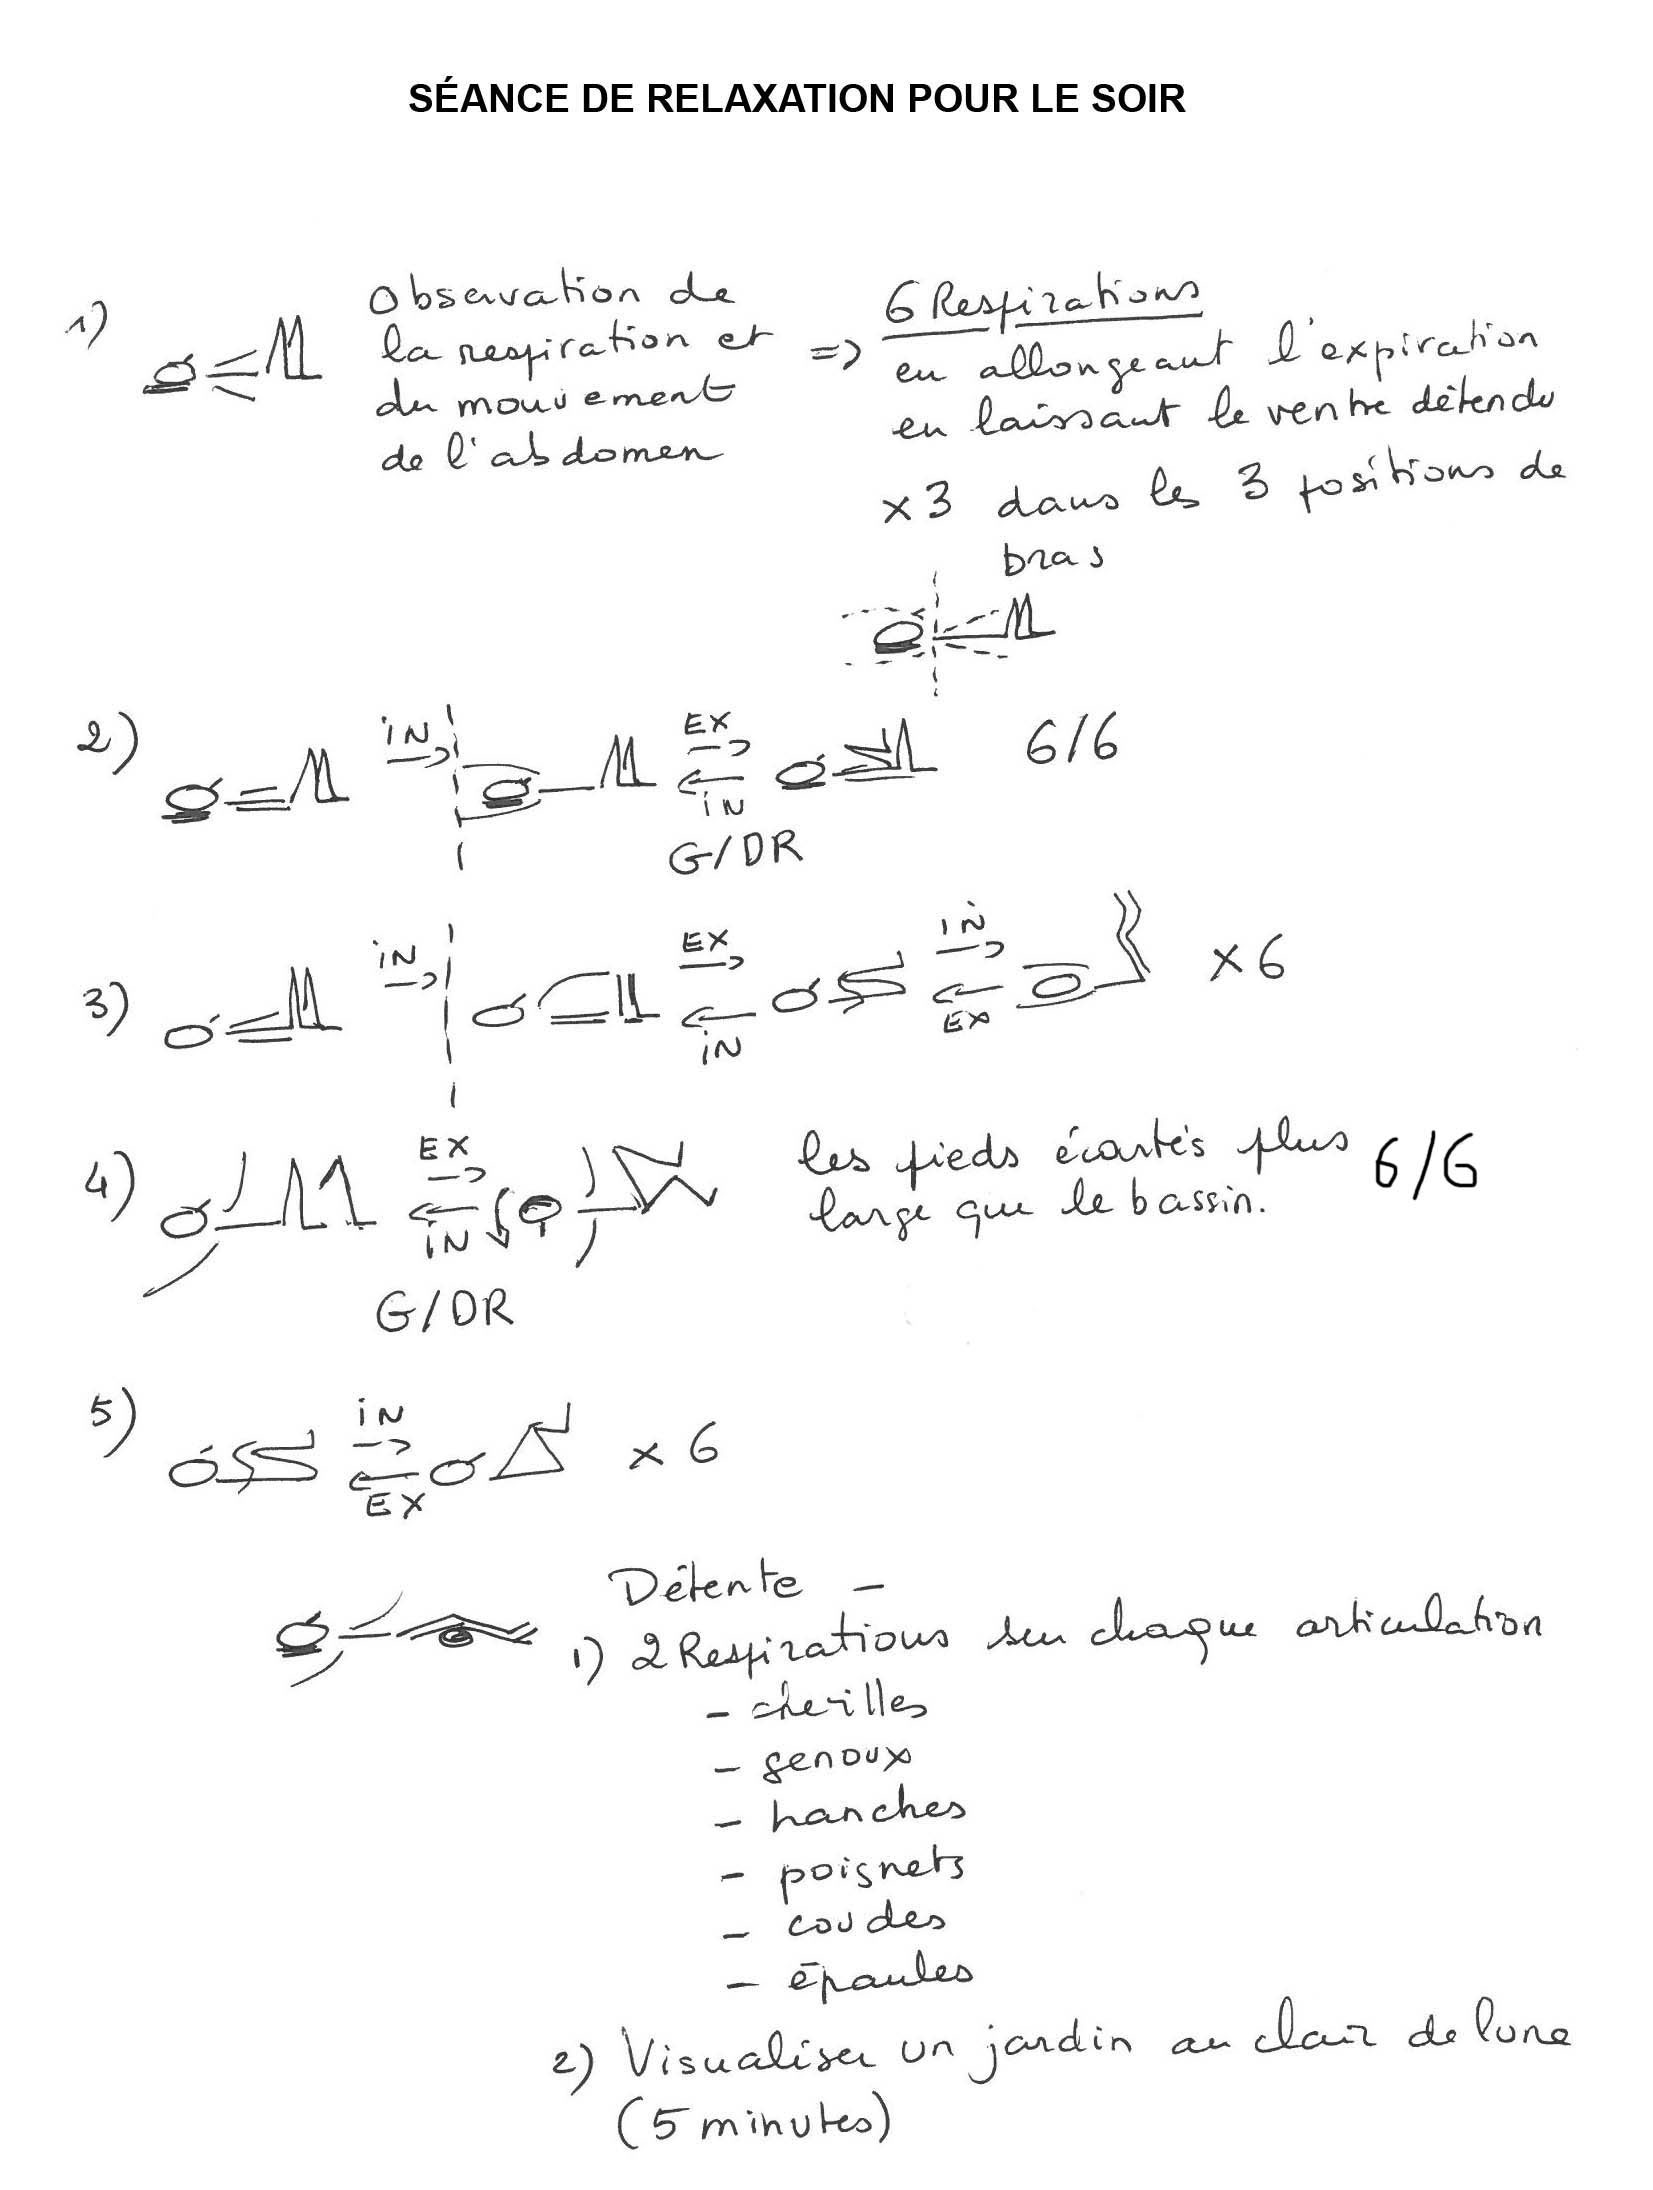 SÉANCE DE RELAXATION POUR LE SOIR
1)
Observation de
la respiration et
du mouvement
de l'abdomen
=> 6 Respirations
en allongeant l'expiration
en laissant le ventre détendu
x3 dans les 3 positions de
bras
2) iN EX iN 6/6
G/DR
3) iN EX iN iN EX x6
4) EX iN les pieds écartés plus 6/6
large que le bassin.
G/DR
5) iN EX x 6
Détente -
1) 2 Respirations sur chaque articulation
- chevilles
- genoux
- hanches
- poignets
- coudes
- épaules
2) Visualiser un jardin au clair de lune
(5 minutes)